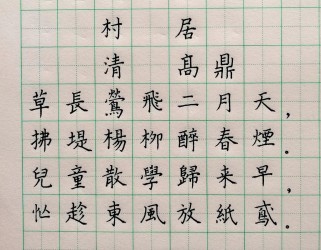 村居
清 高鼎
草長鶯飛二月天，
拂堤楊柳醉春煙。
兒童散學歸来早，
忙趁東風放紙鳶。